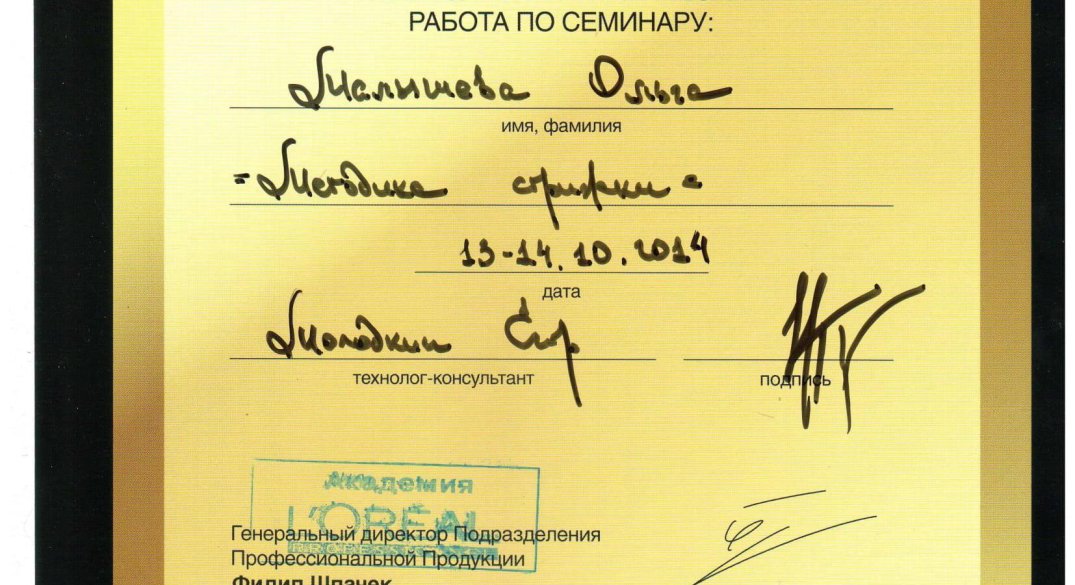 РАБОТА ПО СЕМИНАРУ:
Малышева Ольга
имя, фамилия
"Методика стрижки"
13-14.10.2014
дата
Молодкин
технолог-консультант
подпись
Академия
L'ORÉAL
Генеральный директор Подразделения
Профессиональной Продукции
Филип Шпачек